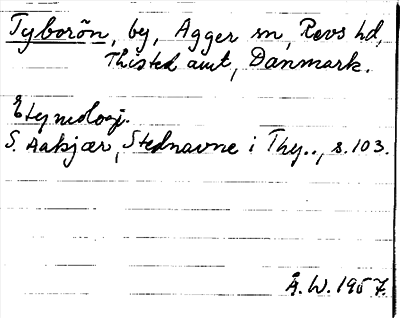 Tyborön, by, Agger sn, Revs hd,
Thisted amt, Danmark.
Etymologi.
S. Aakjær, Stednavne i Thy.., s.103.
Å.W. 1957.